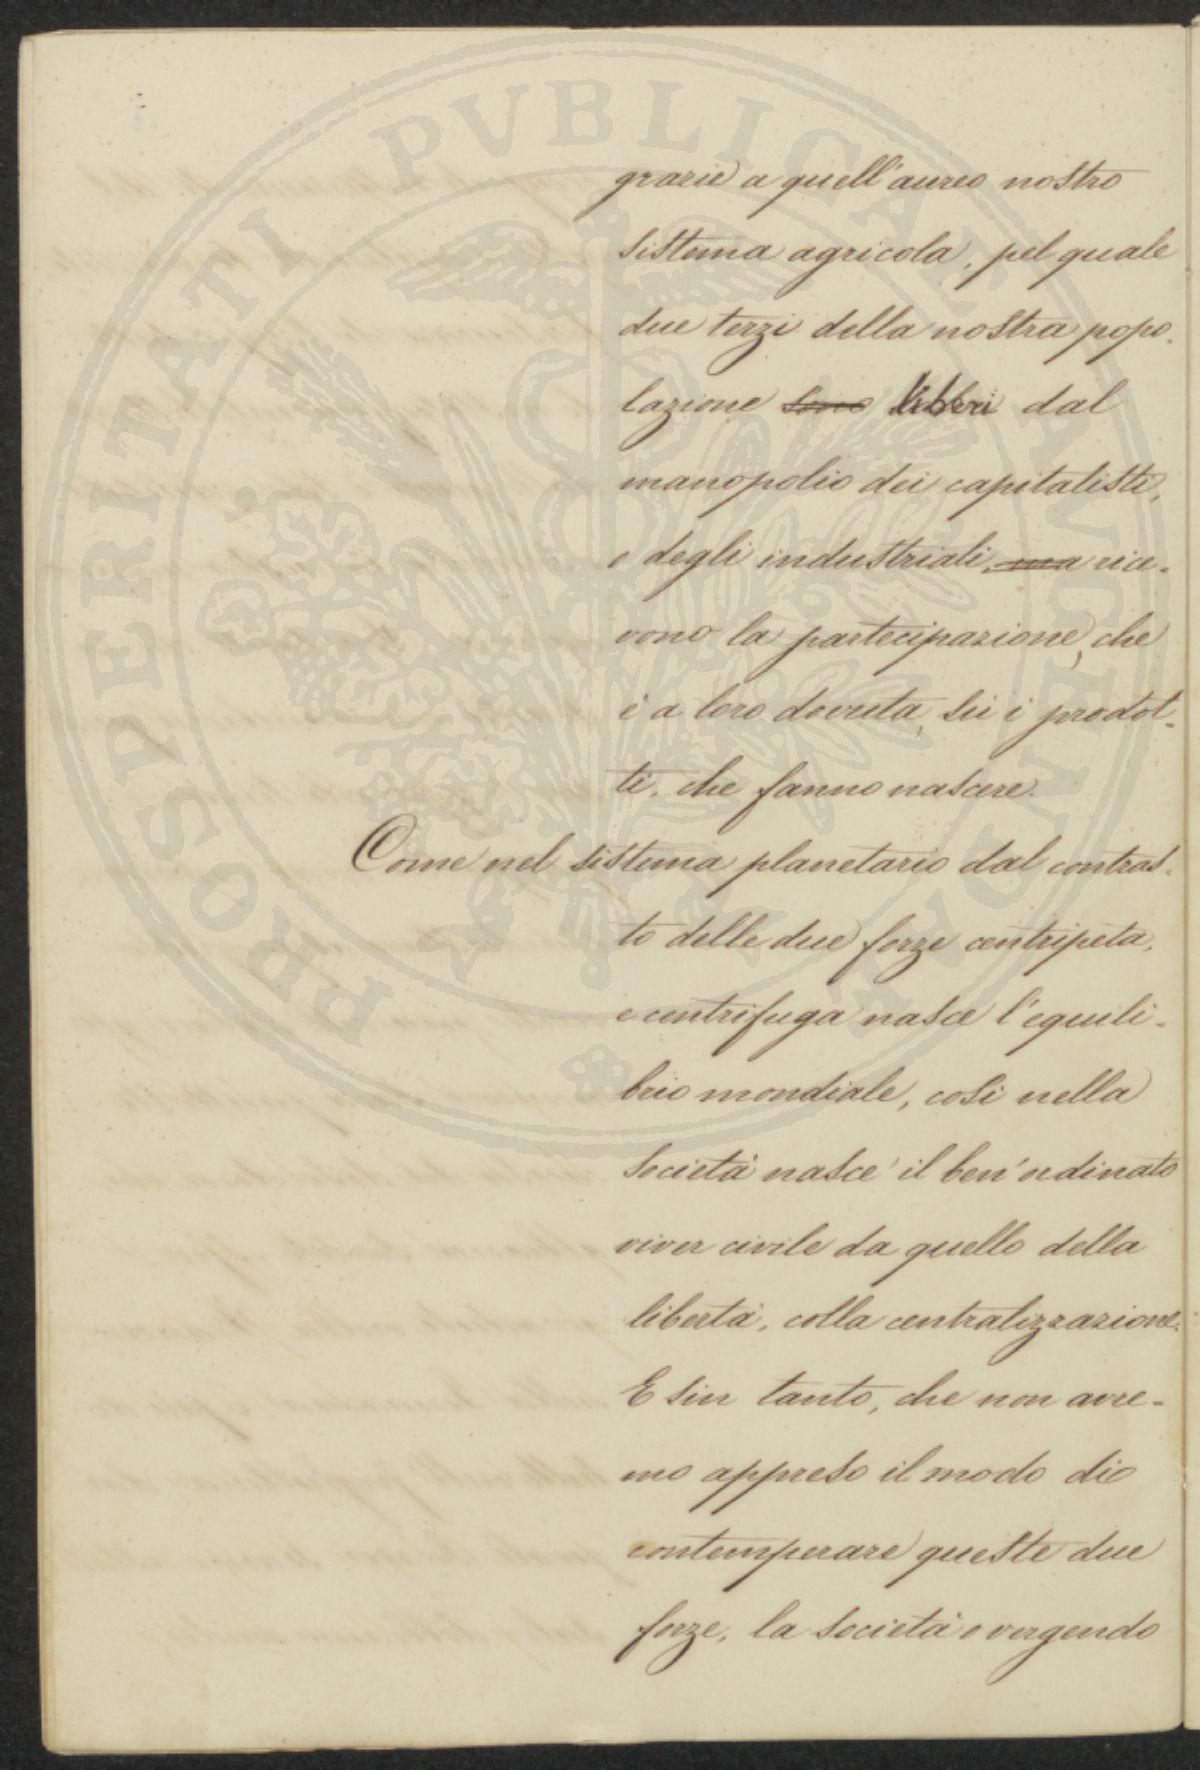 grazie a quell'aureo nostro
sistema agricola, pel quale
due terzi della nostra popo-
lazione sono liberi dal
manopolio dei capitalisti,
o degli industriali, ma rice-
vono la partecipazione, che
è a loro dovuta, su i prodot-
ti, che fanno nascere.
Come nel sistema planetario dal contras-
to delle due forze centripeta,
e centrifuga nasce l'equili-
brio mondiale, così nella
società nasce il ben'ordinato
viver civile da quello della
libertà, colla centralizzazione.
E sin tanto, che non avre-
mo appreso il modo di
contemperare queste due
forze, la società o vergendo
PROSPERITATI PVBLICAE AVGENDAE